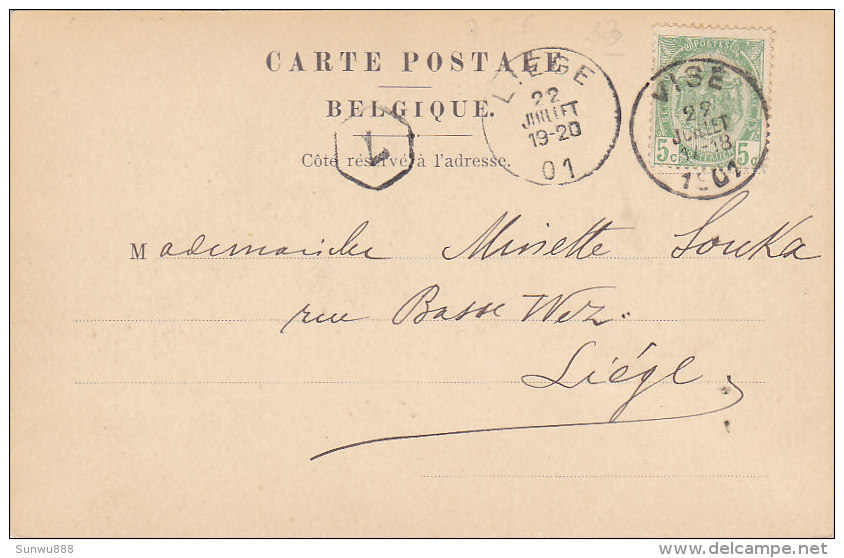 CARTE POSTALE
BELGIQUE.
Côté réservé à l'adresse.
LIEGE
22
JUILLET
19-20
01
VISÉ
22
JUILLET
1901
POSTES
5c 5c
L
Mademoiselle Minette Souka
rue Basse Wez.
Liége
Sunwu888
delcampe.net